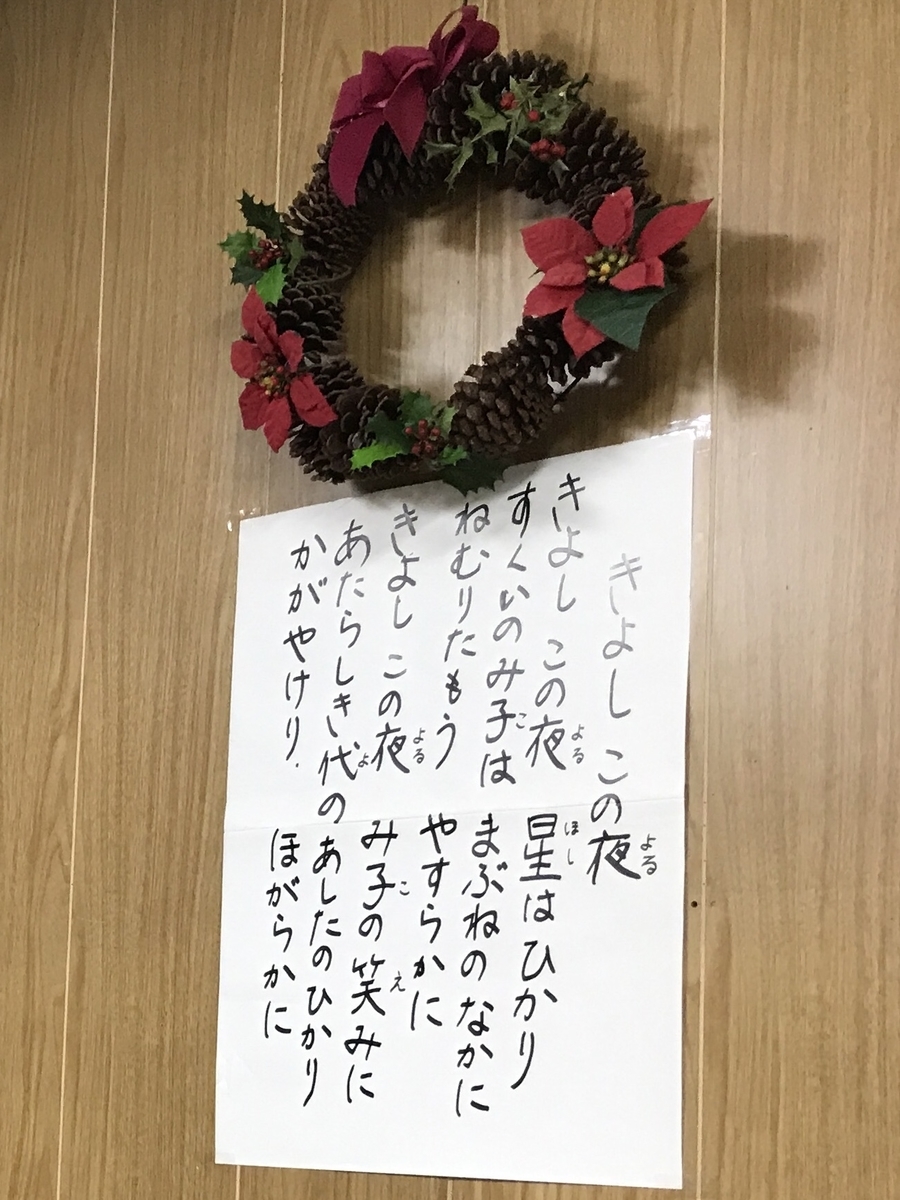 きよし この夜(よる)
きよし この夜(よる) 星(ほし)はひかり
すくいのみ子(こ)は まぶねのなかに
ねむりたもう やすらかに
きよし この夜(よる) み子(こ)の笑(え)みに
あたらしき代(よ)の あしたのひかり
かがやけり. ほがらかに